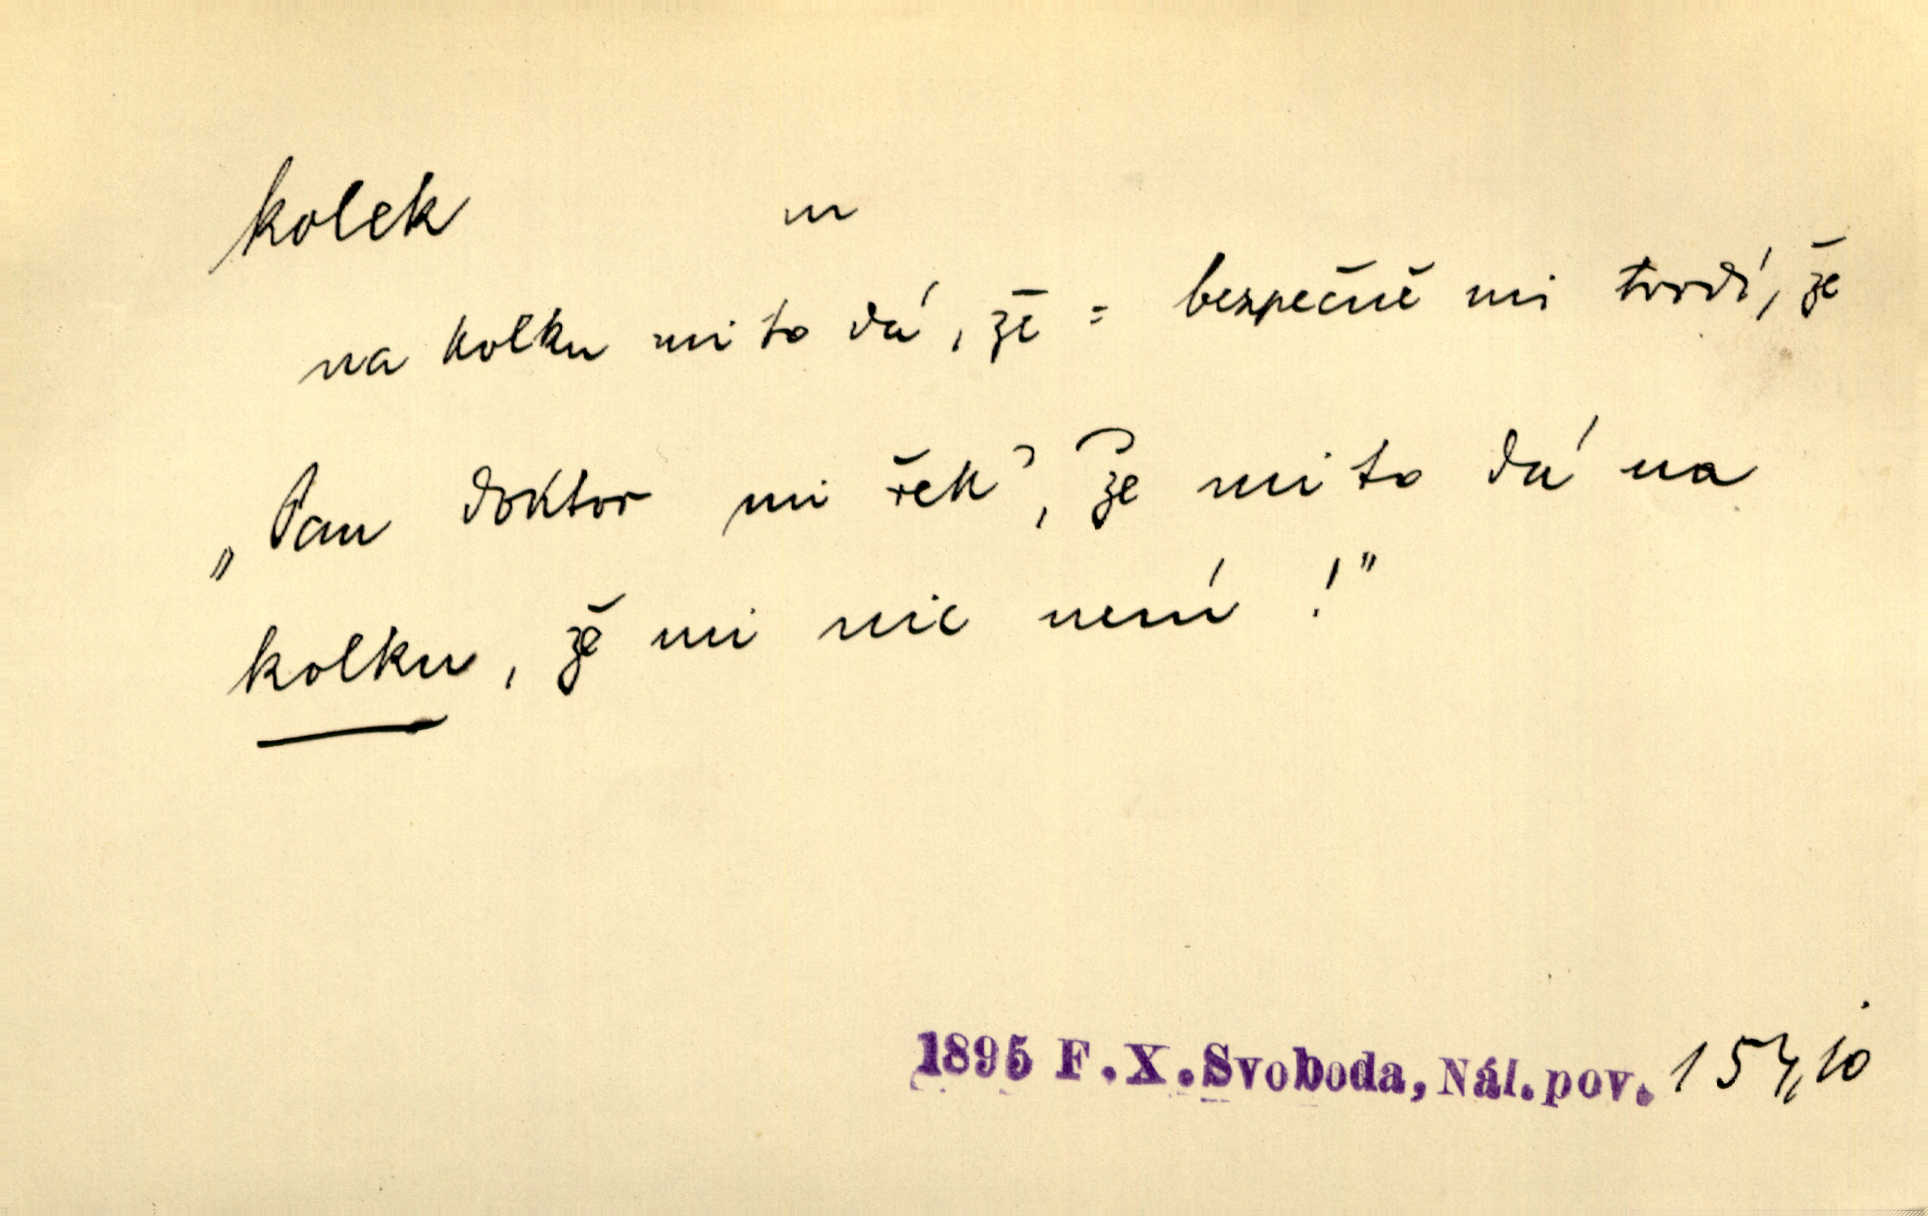 kolek m
na kolku mi to dá, že = bezpečně mi tvrdí, že
„Pan doktor mi řek', že mi to dá na
kolku, že mi nic není!"
1895 F. X. Svoboda, Nál. pov. 154, 10